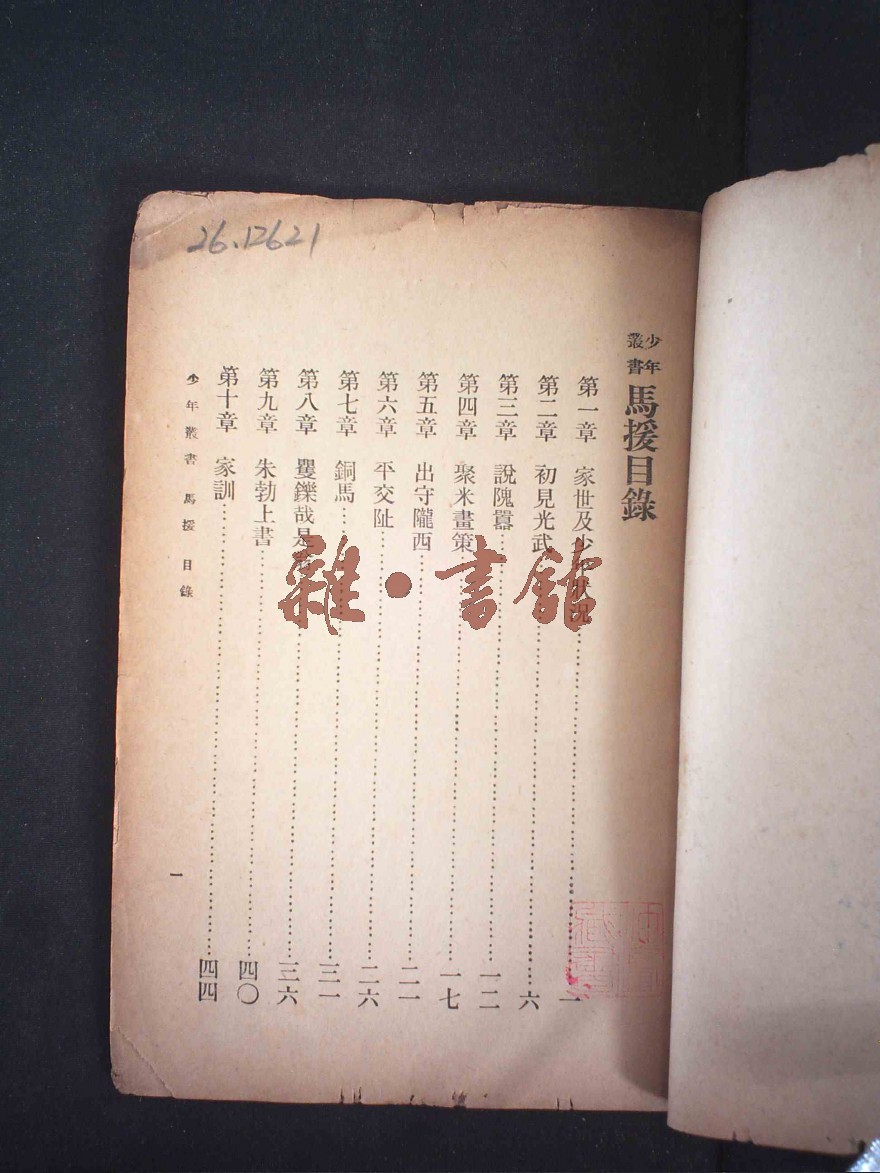 26.12621
少年叢書 馬援目錄
第一章 家世及少年狀況……一
第二章 初見光武……六
第三章 說隗囂……一二
第四章 聚米畫策……一七
第五章 出守隴西……二一
第六章 平交趾……二六
第七章 銅馬……三一
第八章 矍鑠哉是翁……三六
第九章 朱勃上書……四〇
第十章 家訓……四四
少年叢書 馬援 目錄
一
雜·書館